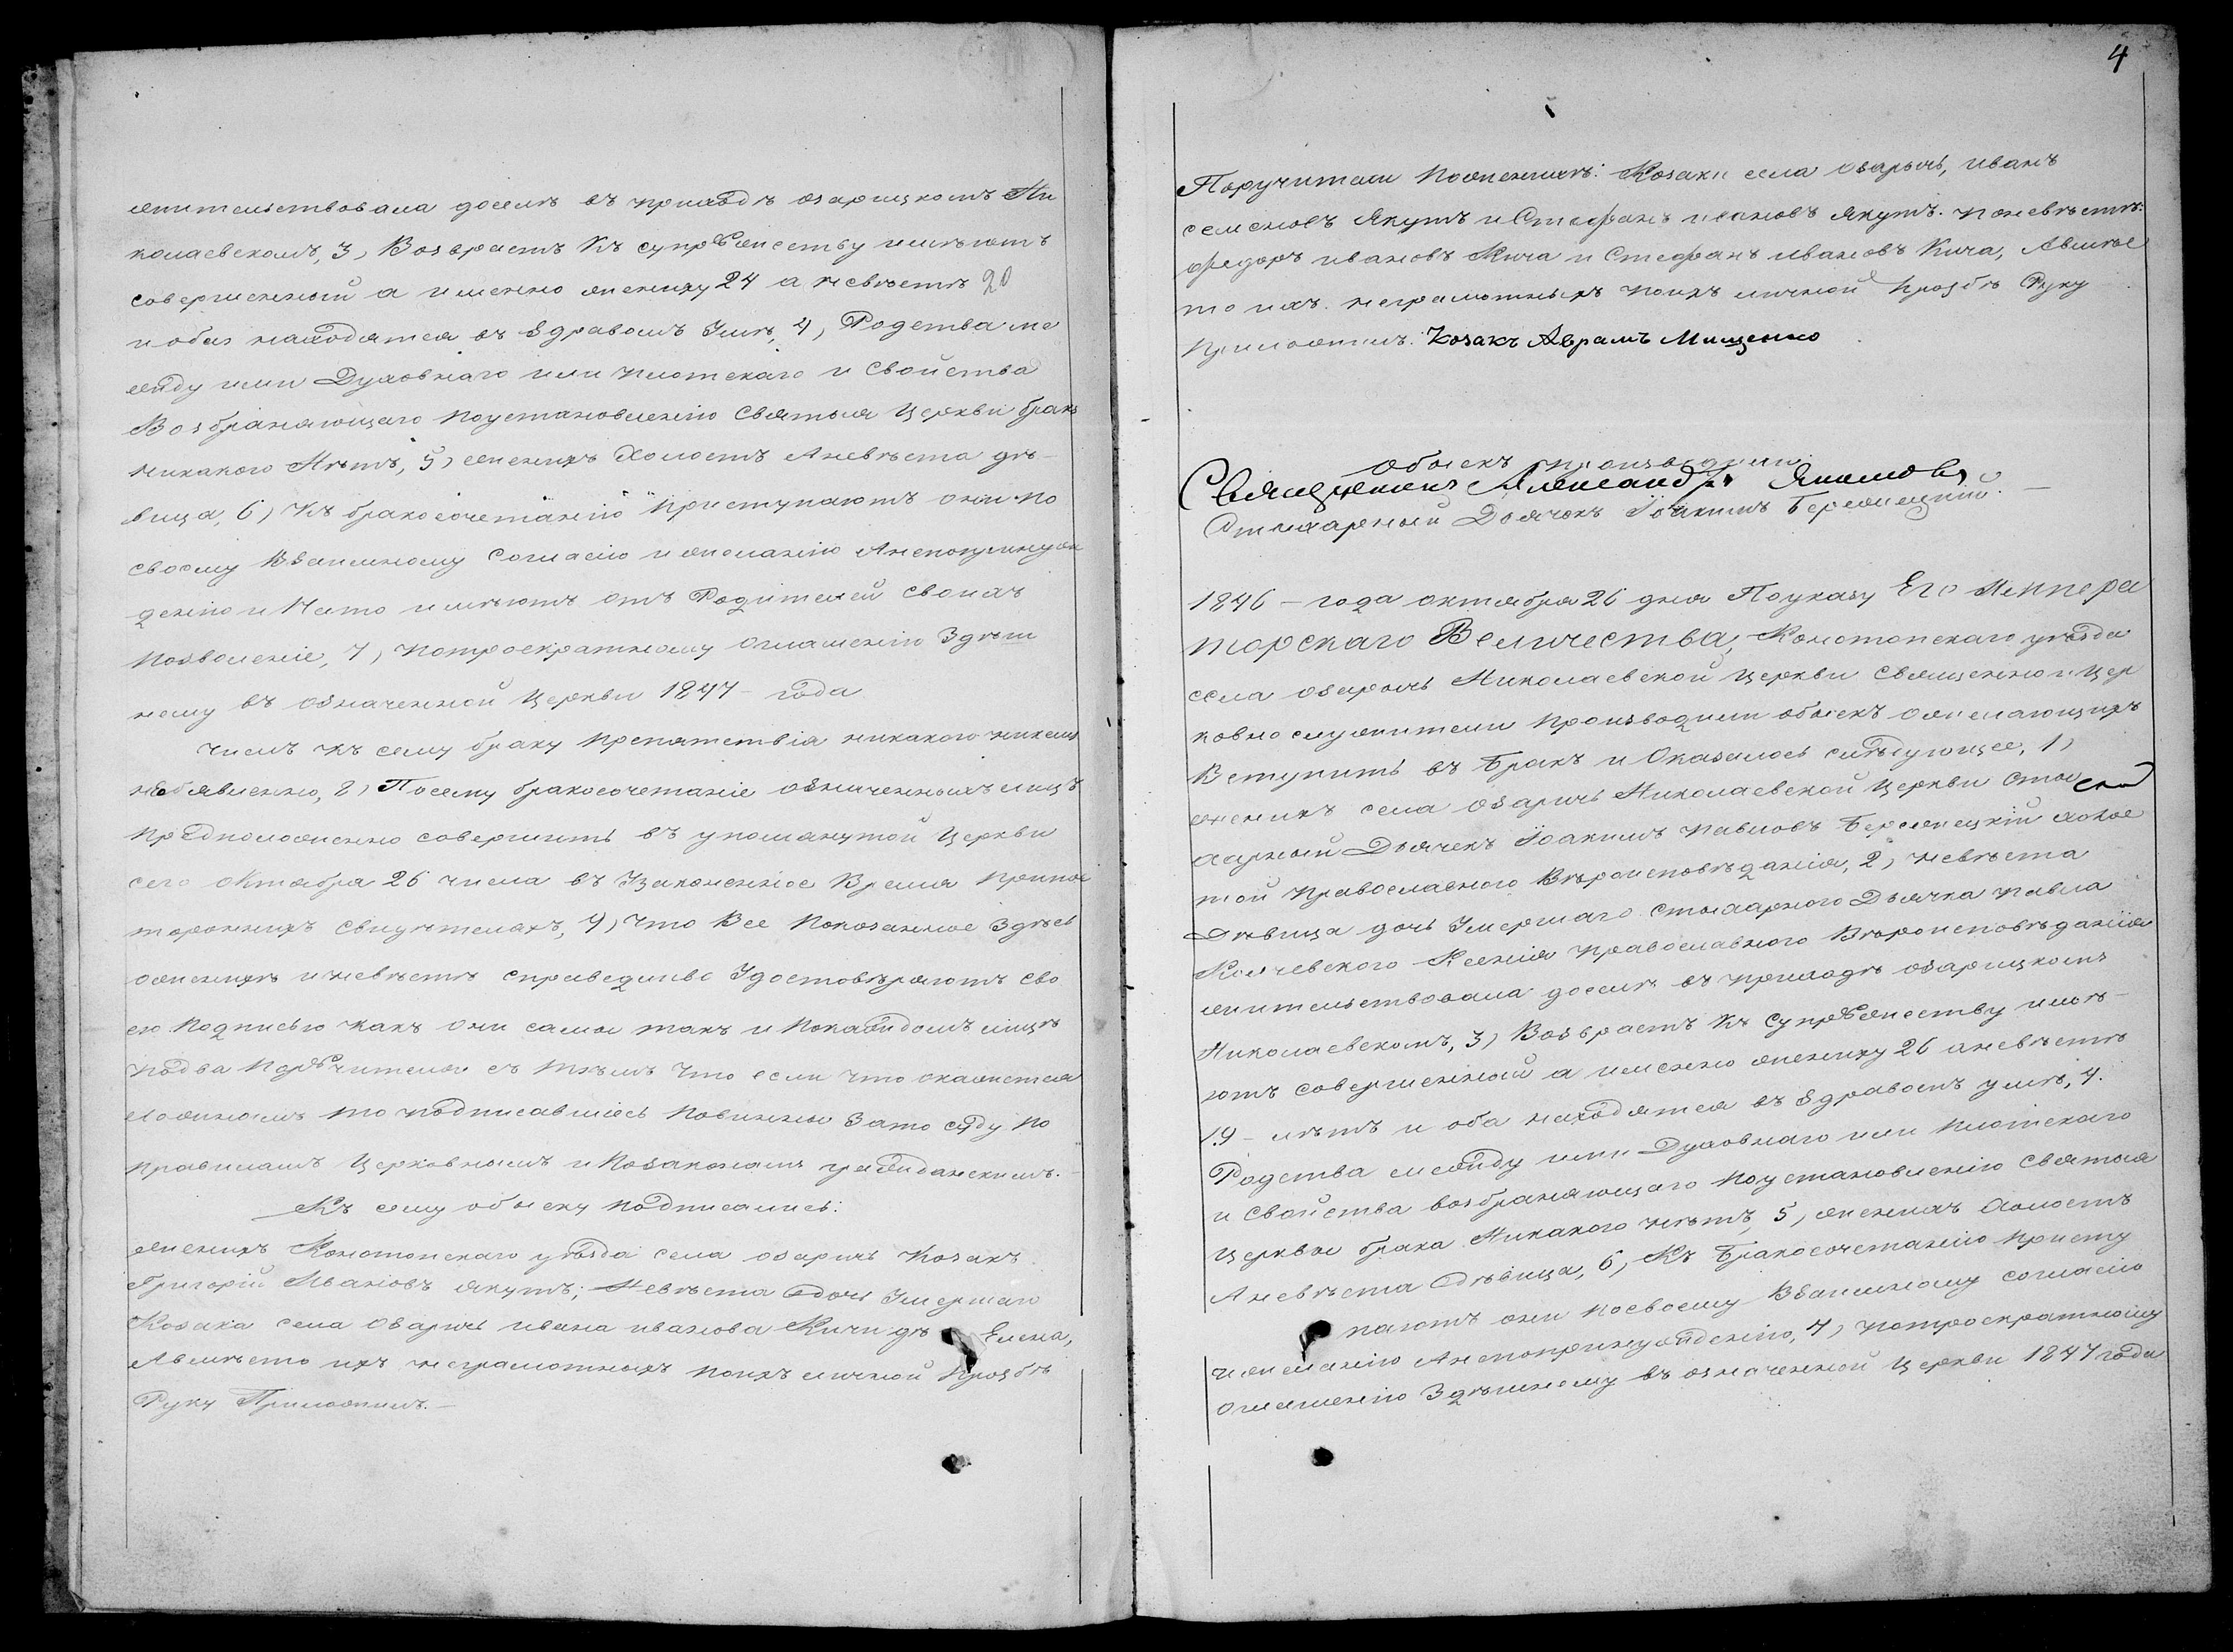 жительствовала доселѣ въ приходѣ озарицкомъ Ни
колаевскомъ, 3, Возврастъ Къ супрꙋжеству имѣютъ
совершенный а именно жениху 24 а невѣстѣ 20
и оба находятся въ Здравомъ Умѣ, 4, Родства ме
жду ими Духовнаго или плотскаго и Свойства
Возбраняющаго поустановленію Святыя Церкви брака
Никакого Нѣтъ, 5, женихъ Холостъ Аневѣста дѣ-
вица, 6) Къ бракосочетанію Приступаютъ они по
своему Взаимному Согласію и желанію Анепопринуж
денію и Нато имѣютъ отъ Родителей своихъ
позволеніе, 7, потроекратному оглашенію Здѣш
нему въ означенной Церкви 1847 - года
числъ къ сему браку препятствія никакого никемъ
необявленно, 8, Посему бракосочетаніе означенныхъ лицъ
предположенно совершить въ упомянутой Церкви
сего октября 26 числа въ Узаконенное Время припос
торонихъ свидѣтеляхъ, 9, Что Все Показанное Здѣсь
оженихѣ иневѣстѣ справедливо Удостовѣряютъ Сво
ею подписью какъ они самы такъ и Покаждомъ лицѣ
подва Порꙋчителя съ тѣмъ Что если Что окажется
ложнымъ то подписавшіесь повинны Зато сꙋду по
правиламъ Церковнымъ и Позаконамъ гражданскимъ.-
Къ сему обыску подписались:
женихъ Конотопскаго уѣзда села озаричъ Козакъ
Григорій Ивановъ Якутъ; Невѣста дочь Умершаго
Козака села Озаричъ ивана иванова Кичи дѣ Елена,
Авмѣсто ихъ неграмотныхъ поихъ личной прозбѣ
Руку Приложилъ.-
4
Поручители Поженихѣ: Козаки села озаричъ, иванъ
семеновъ Якутъ и Стефанъ ивановъ Якутъ. поневѣстѣ:
федоръ ивановъ Кича и Стефанъ ивановъ Кича, Авмѣс
то ихъ неграмотныхъ поихъ личной прозбѣ Руку
приложилъ. Козакъ Аврамъ Мищенко
Обыскъ производили:
Священникъ Александръ
Стихарный Дьячокъ Іоакимъ Бережецкій.-
1846 - года октября 26 дня Поуказу Его Императ
торскаго Величества, Конотопскаго уѣзда
села озаричъ Николаевской Церкви Священно и Цер
ковнослужители производили обыскъ ожелающихъ
Вступить въ Бракъ и Оказалось слѣдующее, 1,
женихъ села озаричъ Николаевской Церкви Сти
харный Дьячекъ Іоакимъ Павловъ Бережецкій холос
той православного Вѣроисповѣданія, 2, невѣста
Дѣвица дочь Умершаго стихарного Дьячка Павла
Ксенія православного Вѣроисповѣданія
жительствовала доселѣ въ приходѣ озарицкомъ
Николаевскомъ, 3, Возврастъ Къ супрꙋжеству имѣ-
ютъ совершенный а именно жениху 26 аневѣстѣ
19 - лѣтъ и оба находятся въ Здравомъ умѣ, 4.
Родства между ими Духовнаго или плотскаго
и Свойства возбраняющаго поустановленію Святыя
церквы брака Никакого нѣтъ, 5, женихъ Холостъ
Аневѣста дѣвица, 6, Къ Бракосочетанію присту
паютъ они посвоему Взаимному согласію
ижеланію Анепопринужденію, 7, потроекратному
оглашенію Здѣшнему въ означенной Церкви 1847 года